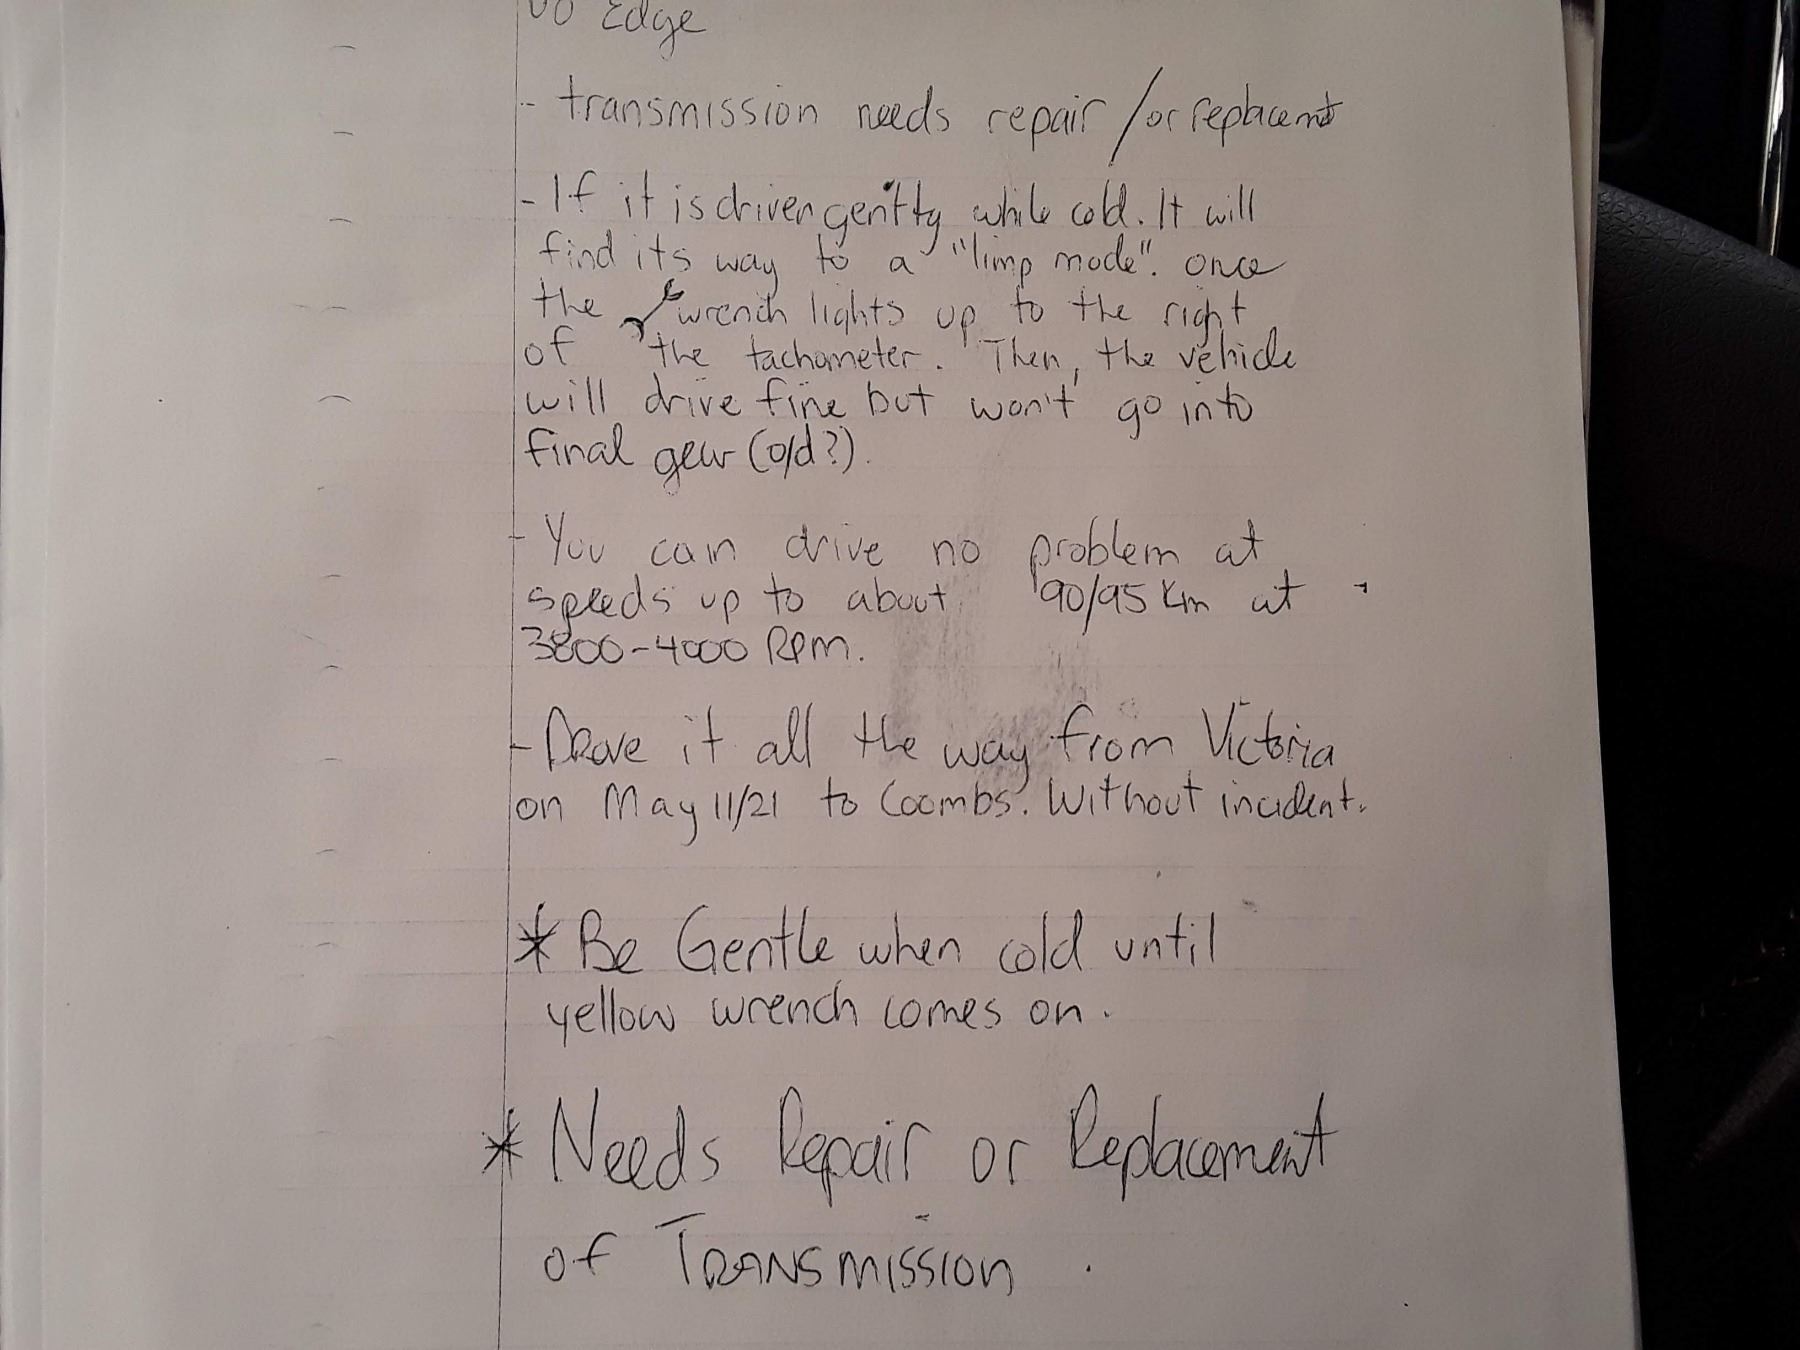 Edge
- transmission needs repair / or replacemnt
- If it is driven gently while cold. It will
find its way to a "limp mode". once
the wrench lights up to the right
of the tachometer. Then, the vehicle
will drive fine but won't go into
final gear (o/d?).
- You can drive no problem at
speeds up to about 90/95 Km at
3800-4000 RPM.
- Drove it all the way from Victoria
on May 11/21 to Coombs. Without incident.
* Be Gentle when cold until
yellow wrench comes on.
* Needs Repair or Replacement
of TRANSMISSION.